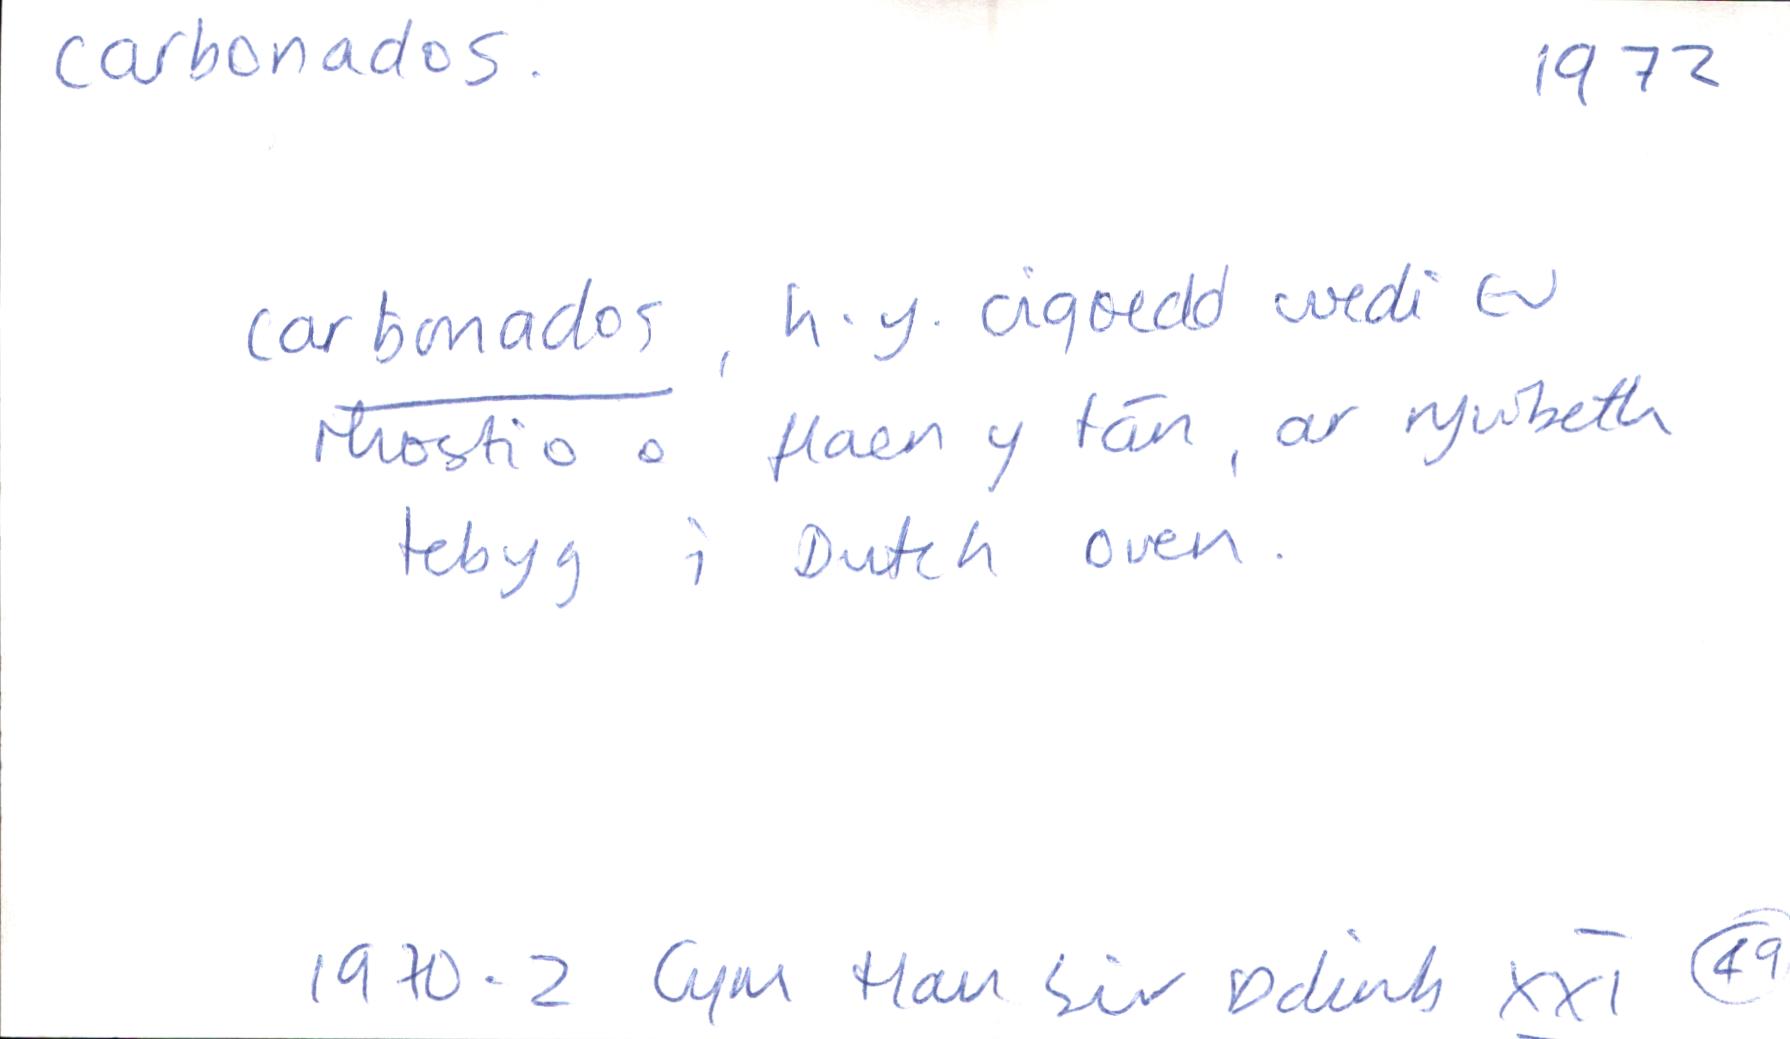 carbonados. 1972
carbonados, h.y. cigoedd wedi eu
rhostio o flaen y tân, ar rywbeth
tebyg i Dutch oven.
1970-2 Cym Han Sir Ddinb XXI 49